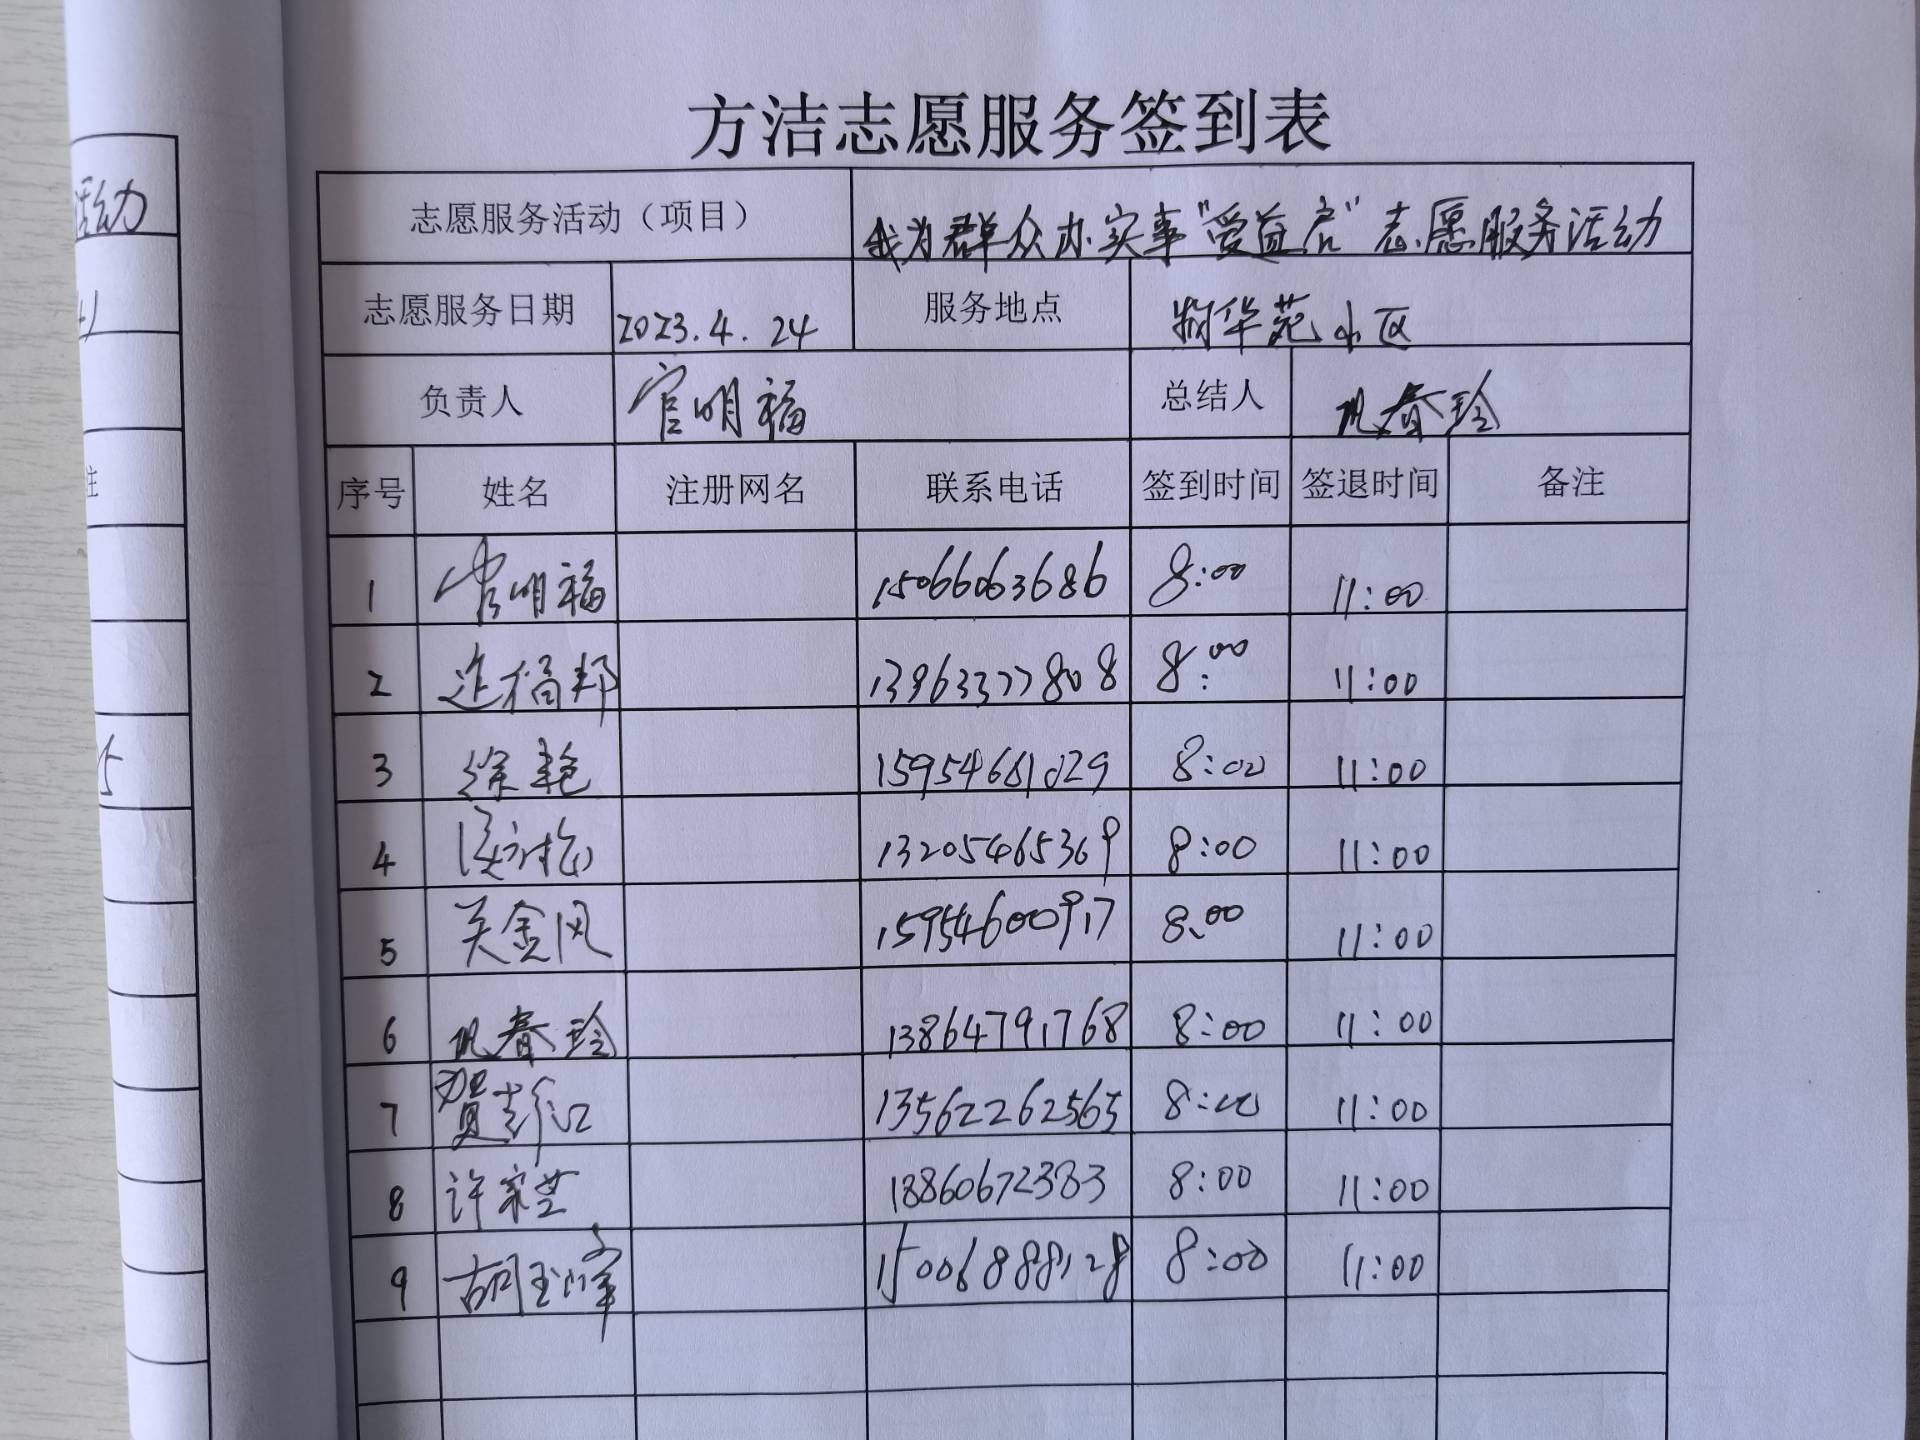 方洁志愿服务签到表
志愿服务活动（项目） 我为群众办实事"受益启"志愿服务活动
志愿服务日期 2023.4.24 服务地点 华苑小区
负责人 官明福 总结人 巩春玲
序号 姓名 注册网名 联系电话 签到时间 签退时间 备注
1 官明福 15066063686 8:00 11:00
2 福邦 13963377808 8:00 11:00
3 徐艳 15954661029 8:00 11:00
4 13205465369 8:00 11:00
5 关金风 15954600917 8:00 11:00
6 巩春玲 13864791768 8:00 11:00
7 贺彭江 13562262565 8:00 11:00
8 许家芸 18860672383 8:00 11:00
9 胡玉峰 15006888128 8:00 11:00
活动
注